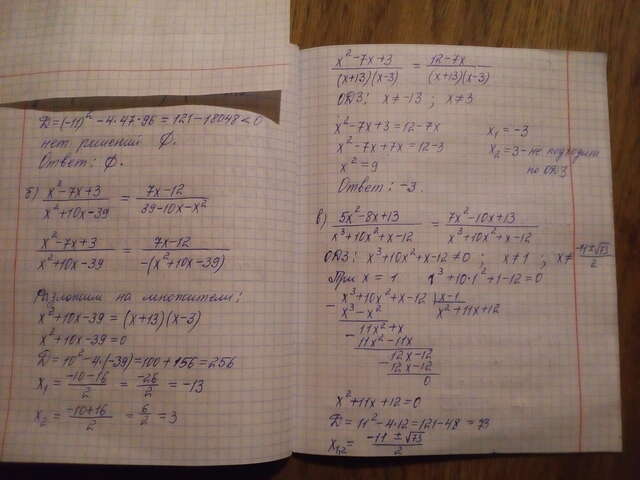 D=(-11)² -4·47·96=121-18048<0
нет решений ∅.
Ответ: ∅.
б) (x²-7x+3)/(x²+10x-39) = (7x-12)/(39-10x-x²)
(x²-7x+3)/(x²+10x-39) = (7x-12)/(-(x²+10x-39))
Разложим на множители:
x²+10x-39=(x+13)(x-3)
x²+10x-39=0
D=10²-4·(-39)=100+156=256
x₁=(-10-16)/2 = (-26)/2 = -13
x₂=(-10+16)/2 = 6/2 = 3
(x²-7x+3)/((x+13)(x-3)) = (12-7x)/((x+13)(x-3))
ОДЗ: x≠-13 ; x≠3
x²-7x+3=12-7x x₁=-3
x²-7x+7x=12-3 x₂=3-не подходит
x²=9 по ОДЗ
Ответ: -3.
в) (5x²-8x+13)/(x³+10x²+x-12) = (7x²-10x+13)/(x³+10x²+x-12)
ОДЗ: x³+10x²+x-12≠0 ; x≠1 ; x≠(-11±√73)/2
При x=1 1³+10·1²+1-12=0
- x³+10x²+x-12 | x-1
x³-x² x²+11x+12
- 11x²+x
11x²-11x
- 12x-12
12x-12
0
x²+11x+12=0
D=11²-4·12=121-48=73
x₁,₂=(-11±√73)/2